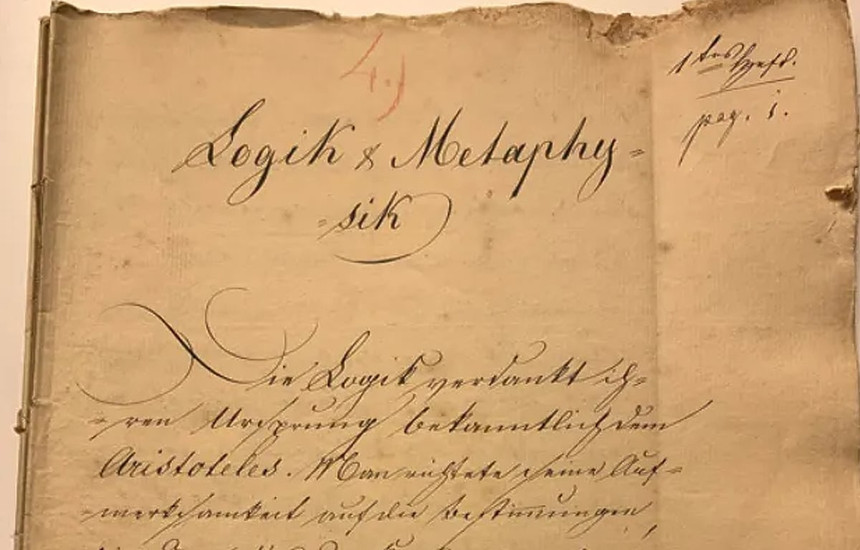 4.)
1tes Heft.
pag. 1.
Logik & Metaphy=
=sik
Die Logik verdankt ih=
=ren Ursprung bekanntlich dem
Aristoteles. Man richtete seine Auf=
=merksamkeit auf die Bestimmungen,